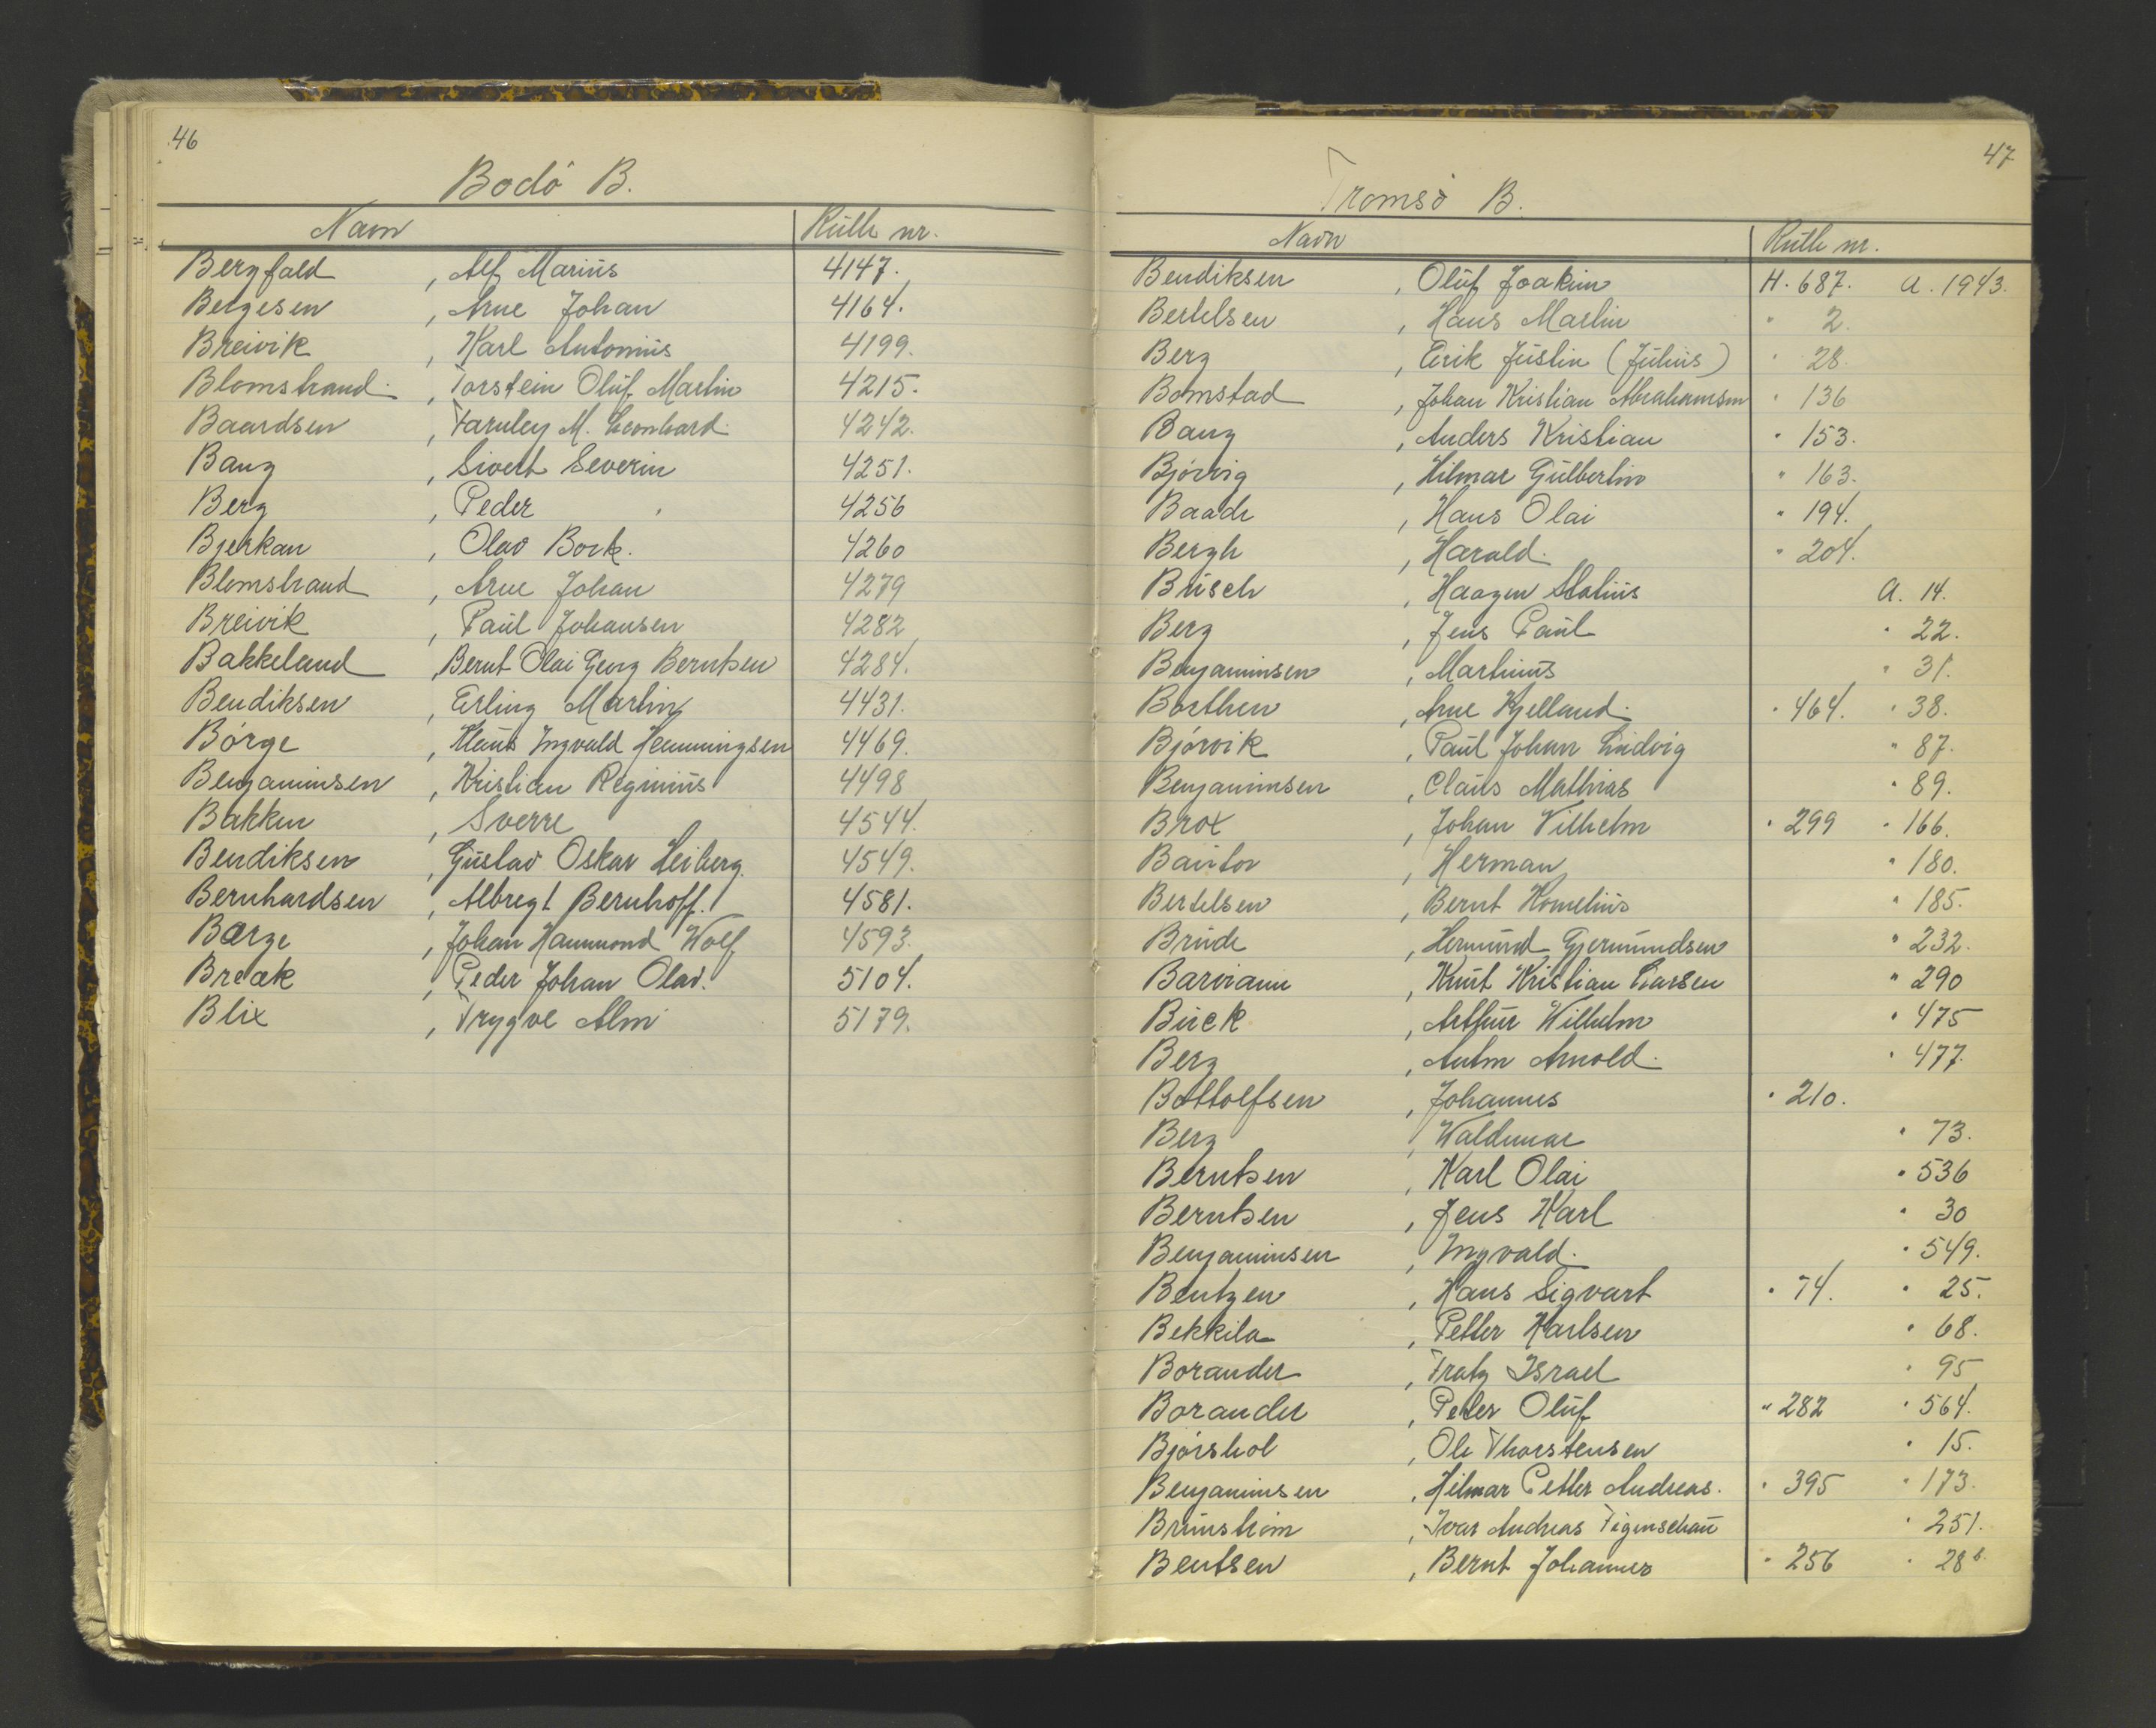 46
Bodö B.
Navn Rulle nr.
Bergfald , Alf Marius 4147.
Bergesen , Arne Johan 4164.
Breivik , Karl Antonius 4199.
Blomstrand , Torstein Oluf Martin 4215.
Baardsen , Farnley M. Leonhard 4242.
Bang , Sivert Severin 4251.
Berg , Peder 4256
Bjerkan , Olav Bork. 4260
Blomstrand , Arne Johan 4279
Breivik , Paul Johansen 4282
Bakkeland , Bernt Olai Georg Berntsen 4284.
Bendiksen , Erling Martin 4431.
Börge , Klaus Ingvald Henningsen 4469.
Benjaminsen , Kristian Reginius 4498
Bakken , Sverre 4544.
Bendiksen , Gustav Oskar Heiberg. 4549.
Bernhardsen , Albregt Bernhoff. 4581.
Barge , Johan Hammond Wolf 4593.
Breok , Peder Johan Olav. 5104.
Blix , Trygve Alm 5179.
47
Tromsö B.
Navn Rulle nr.
Bendiksen , Oluf Joakim H. 687. A. 1943.
Bertelsen , Hans Martin " 2.
Berg , Eirik Justin (Julius) " 28.
Bomstad , Johan Kristian Abrahamsen " 136
Bang , Anders Kristian " 153.
Bjørvig , Hilmar Gulbertin " 163.
Baade , Hans Olai " 194.
Bergh , Harald. " 204.
Busch , Haagen Stalius A. 14.
Berg , Jens Paul " 22.
Benjaminsen , Martinus " 31.
Borthen , Arne Kjelland. " 464. " 38.
Bjórvik , Paul Johan Ludvig " 87.
Benjaminsen , Claus Mathias " 89.
Brox , Johan Vilhelm " 299 " 166.
Bautor , Herman " 180.
Bertelsen , Bernt Kornelius " 185.
Brude , Hermund Gjermundsen " 232.
Barviann , Knut Kristian Larsen " 290
Buck , Arthur Wilhelm " 475
Berg , Anton Arnold. " 477.
Bottolfsen , Johannes " 210.
Berg , Waldemar " 73.
Berntsen , Karl Olai " 536
Berntsen , Jens Karl " 30
Benjaminsen , Ingvald. " 549.
Bentzen , Hans Sigvart " 74. " 25.
Bekkila , Petter Karlsen " 68.
Borander , Fratz Israel " 95
Borander , Peder Oluf " 282 " 564.
Bjórshol , Ole Thorstensen " 15.
Benjaminsen , Hilmar Petter Andreas. " 395 " 173.
Brunstrom , Ivar Andreas Figenschau " 251.
Bentsen , Bernt Johannes " 256 " 286.